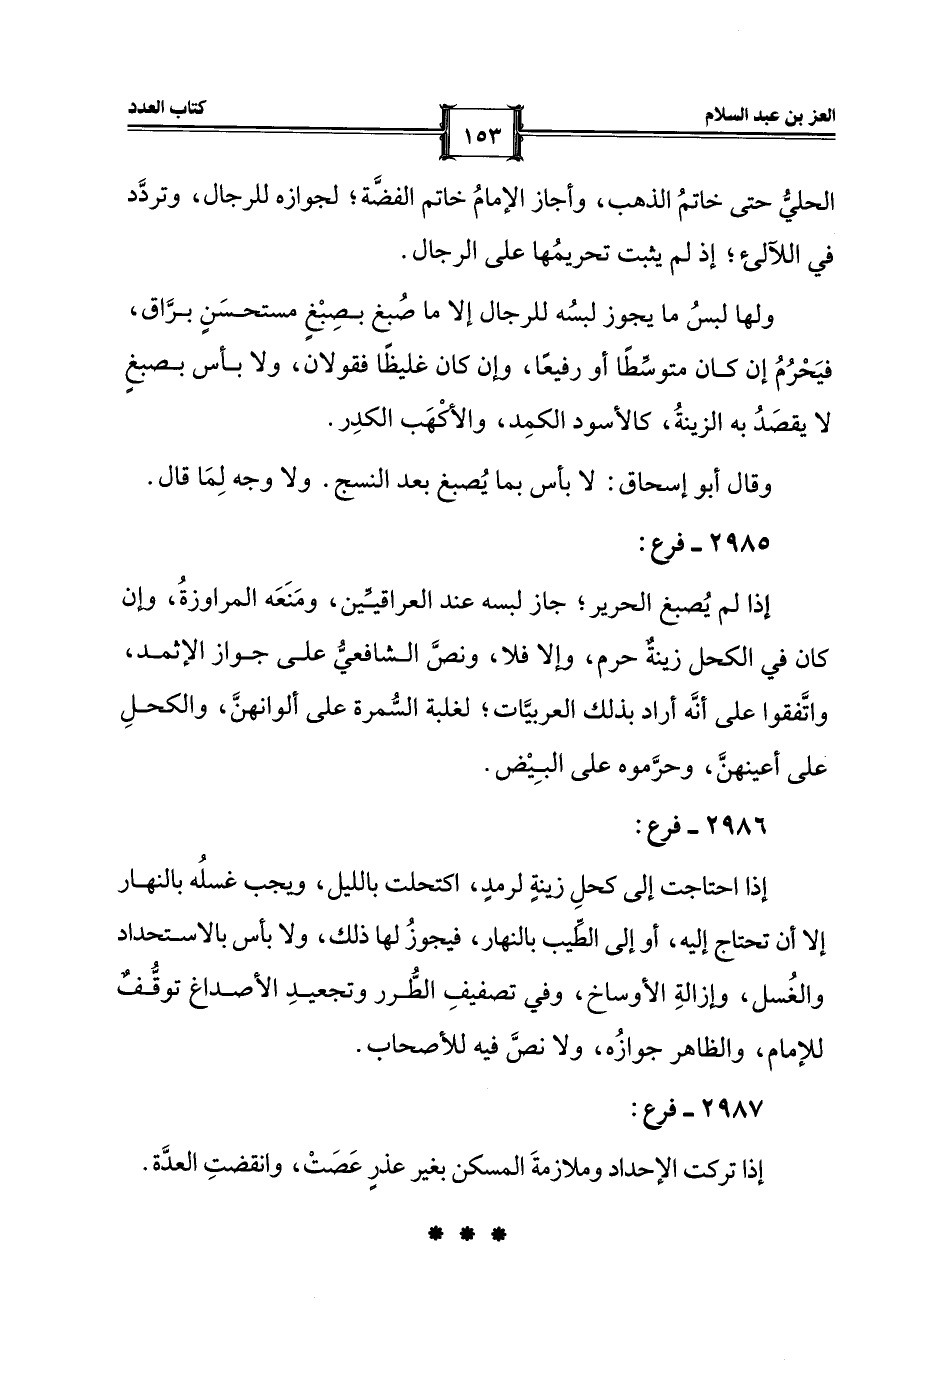 العز بن عبد السلام
١٥٣
كتاب العدد
الحليُّ حتى خاتمُ الذهب، وأجاز الإمامُ خاتم الفضَّة؛ لجوازه للرجال، وتردَّد
في اللآلئ؛ إذ لم يثبت تحريمُها على الرجال.
ولها لبسُ ما يجوز لبسُه للرجال إلا ما صُبغ بصِبْغٍ مستحسَنٍ برَّاق،
فيَحْرُمُ إن كان متوسِّطًا أو رفيعًا، وإن كان غليظًا فقولان، ولا بأس بصبغٍ
لا يقصَدُ به الزينةُ، كالأسود الكمِد، والأكْهَب الكدِر.
وقال أبو إسحاق: لا بأس بما يُصبغ بعد النسج. ولا وجه لِمَا قال.
٢٩٨٥ - فرع:
إذا لم يُصبغ الحرير؛ جاز لبسه عند العراقيِّين، ومَنَعَه المراوزةُ، وإن
كان في الكحل زينةٌ حرم، وإلا فلا، ونصَّ الشافعيُّ على جواز الإثمد،
واتَّفقوا على أنَّه أراد بذلك العربيَّات؛ لغلبة السُّمرة على ألوانهنَّ، والكحلِ
على أعينهنَّ، وحرَّموه على البِيْض.
٢٩٨٦ - فرع:
إذا احتاجت إلى كحلِ زينةٍ لرمدٍ، اكتحلت بالليل، ويجب غسلُه بالنهار
إلا أن تحتاج إليه، أو إلى الطِّيب بالنهار، فيجوزُ لها ذلك، ولا بأس بالاستحداد
والغُسل، وإزالةِ الأوساخ، وفي تصفيفِ الطُّرر وتجعيدِ الأصداغ توقُّفٌ
للإمام، والظاهر جوازُه، ولا نصَّ فيه للأصحاب.
٢٩٨٧ - فرع:
إذا تركت الإحداد وملازمةَ المسكن بغير عذرٍ عَصَتْ، وانقضتِ العدَّة.
* * *